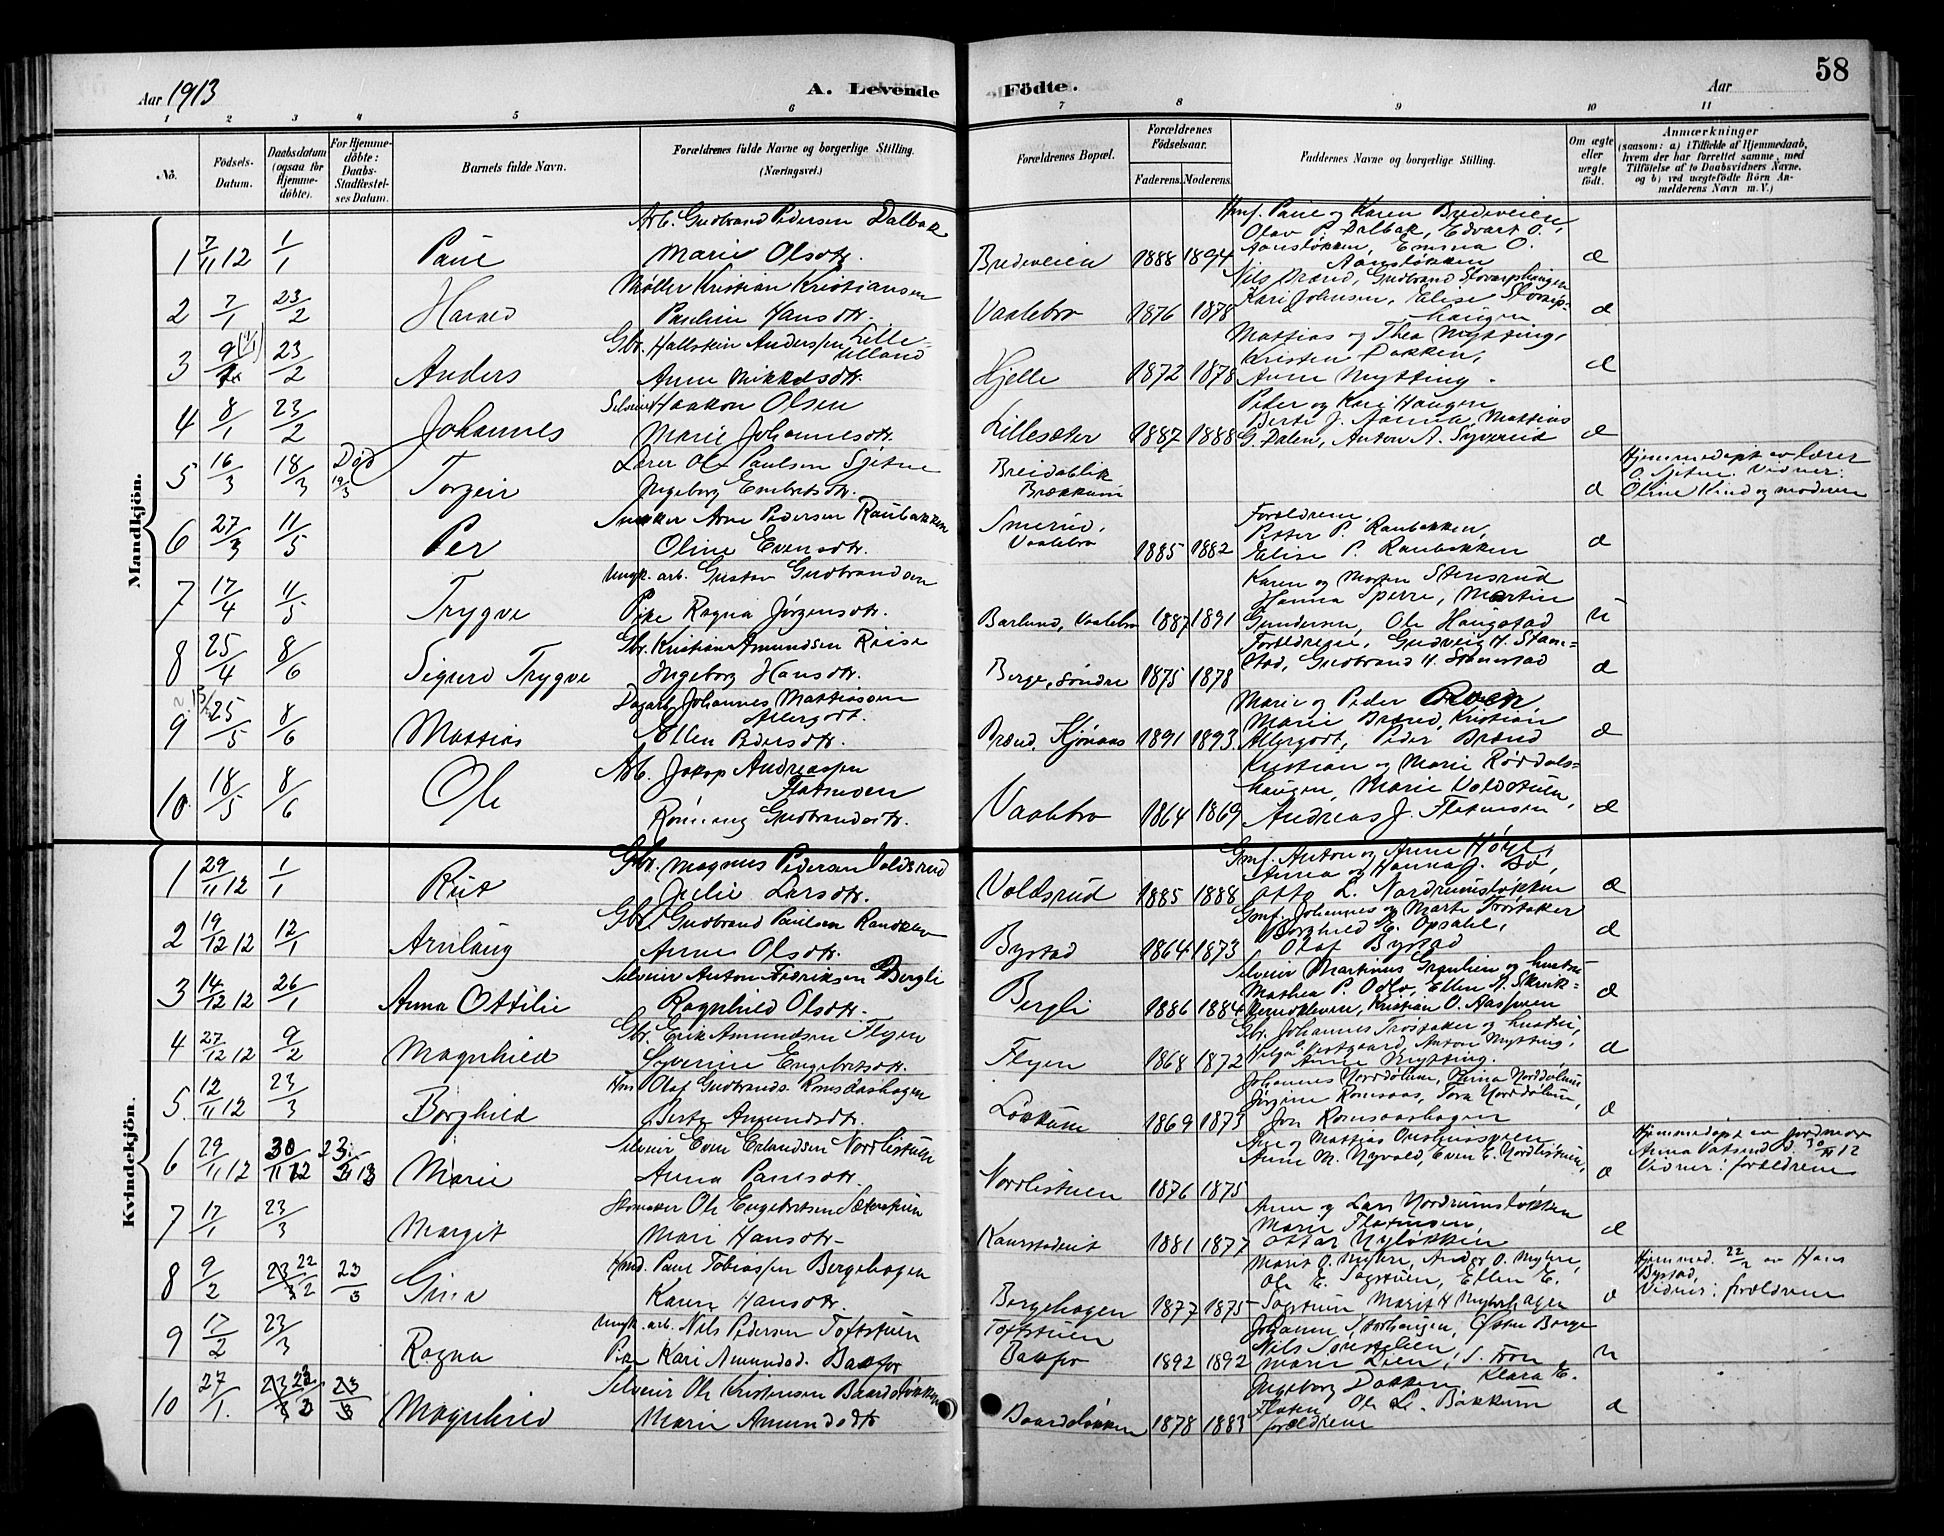 Aar 1913
A. Levende Födte.
Aar
58
1 2 3 4 5 6 7 8 9 10 11
No.
Födsels-Datum.
Daabsdatum (ogsaa for Hjemme-döbte).
For Hjemme-döbte: Daabs-Stadfæstel-ses Datum.
Barnets fulde Navn.
Forældrenes fulde Navne og borgerlige Stilling. (Næringsvei.)
Forældrenes Bopæl.
Forældrenes Födselsaar.
Faderens. Moderens.
Faddernes Navne og borgerlige Stilling.
Om ægte eller uægte födt.
Anmærkninger
(saasom: a) i Tilfælde af Hjemmedaab, hvem der har forrettet samme, med Tilföielse af to Daabsvidners Navne, og b) ved uægtefödte Börn An-melderens Navn m. V.)
Mandkjön.
1 7/11 12 1/1 Paul Arb. Gudbrand Pedersen Dalbak
Marie Olsdtr. Bredeveien 1888 1894 Paul og Karen Bredeveien,
Olav P. Dalbak, Edvart O.
Aansløkken, Emma O.
Aansløkken
2 7/1 23/2 Harald Møller Kristian Kristiansen
Pauline Hansdtr. Vaalebro 1876 1878 Nils Brænd, Gudbrand
Kari Johnsen, Elise
3 23/2 Anders Gbr. Hallstein Anderssen Lille-
Anne Mikkelsdtr. Hjelle 1872 1878 Mattias og Thea Mytting,
Kristen Dokken,
Anne Mytting.
4 8/1 23/2 Johannes Selveier Haakon Olsen
Marie Johannesdtr. Lillesæter 1887 1888 Peder og Kari Haugen
Mattias
G. Dalen, Anton A. Syverud
5 16/3 18/3 Død 19/3 Torgeir Lærer Ole Paulsen Sjetne
Ingeborg Embretsdtr. Breidablik
Brækkum Hjemmedøpt av lærer
O. Sjetne. Vidner:
Oline Lind og moderen
6 27/3 11/5 Per Snekker Arne Pedersen Raubakken
Oline Evensdtr. Smerud,
Vaalebro 1885 1882 Forældrene,
Petter P. Raubakken,
Elise P. Raubakken
7 17/4 11/5 Trygve Ungk. arb. Gustav Gudbrandsen
Pike Ragna Jørgensdtr. Barlund, Vaalebro 1887 1891 Karen og Morten Stensrud
Hanna Sperre, Martin
Gundersen, Ole Haugstad u
8 25/4 8/6 Sigurd Trygve Gbr. Kristian Amundsen Riise
Ingeborg Hansdtr. Berge, søndre 1875 1878 Forældrene, Gudveig H. Stam-
stad, Gudbrand H. Stamstad
9 25/5 8/6 Mattias Dagarb. Johannes Mattiassen
Allergodt.
Ellen Pedersdtr. Brænd, Kjønaas 1891 1893 Marie og Peder Roen,
Marie Brænd, Kristian
Allergodt, Peder Brænd
10 18/5 8/6 Ole Arb. Jakop Andreassen
Flatmoen
Rønnaug Gudbrandsdtr. Vaalebro 1864 1869 Kristian og Marie Røddals-
haugen, Marie Voldstuen,
Andreas J. Flatmoen
Kvindekjön.
1 29/11 12 1/1 Rut Gbr. Magnus Pedersen Voldsrud
Julie Larsdtr. Voldsrud 1885 1888 Gmf. Anton og Anne
Anna og Hanna J. Bø,
Otto L. Nordrumsløkken
2 19/12 12 12/1 Arnlaug Gbr. Gudbrand Paulsen Randklev
Anne Olsdtr. Bystad 1864 1873 Gmf. Johannes og Marte Trøstaker
Borghild E. Opsahl,
Olaf Bystad
3 14/12 12 26/1 Anna Ottilie Selveier Anton Fredriksen Bergli
Ragnhild Olsdtr. Bergli 1886 1884 Selveier Martinus Grønlien og hustru
Mathea P. Odlo, Ellen A. Skruk-
Kristian O. Aasseren
4 27/12 12 9/2 Magnhild Gbr. Erik Amundsen Flyen
Syverine Engebretsdtr. Flyen 1868 1872 Gbr. Johannes Trøstaker og hustru,
Helga Vestgaard, Anton Mytting,
Anne Mytting.
5 12/11 12 23/3 Borghild Olaf Gudbrands. Romsaashagen
Berte Amundsdtr. Løkkum 1869 1873 Johannes Norddølum, Norddølum
Jørgine Romsaas, Tora Norddølum,
Jon Romsaashagen
6 29/11 12 30/11 12 23/3 13 Marie Selveier Even Erlandsen Nordlistuen
Anna Paulsdtr. Nordlistuen 1876 1875 og Mattias
Anne M. Nyvold, Even E. Nordlistuen, Hjemmedøpt av jordmor
Anna Vatsend d. 30/11 12
Vidner: forældrene
7 17/1 23/3 Margit Skomaker Ole Engebretsen Sæterstuen
Mari Hansdtr. Kaurstadeit 1881 1877 Anne og Lars Nordrumsløkken
Marie Flatmoen,
Ottar Nyløkken
8 9/2 22/2 23/3 Gina Hmd. Paul Tobiassen Bergehagen
Karen Hansdtr. Bergehagen 1877 1875 Marit O. Myhre, Anders O. Myhre,
Ole E. Sagstuen, Ellen E.
Sagstuen Marit H Myhrhagen Hjemmed. 22/2 av Hans
Bystad,
Vidner: forældrene
9 17/2 23/3 Ragna Ungk. arb. Nils Pedersen Toftstuen
Pike Kari Amundsd. Baafor Toftstuen
Baafor 1892 1892 Johanne Storhaugen, Østen Berge
Nils
Marie Lien, S. Fron u
10 27/1 23/3 Magnhild Selveier Ole Kristensen Baardsløkken
Marie Amundsdtr Baardsløkken 1878 1883 Ingeborg Dokken Klara E.
Flaten Ole L. Bakkum
forældrene